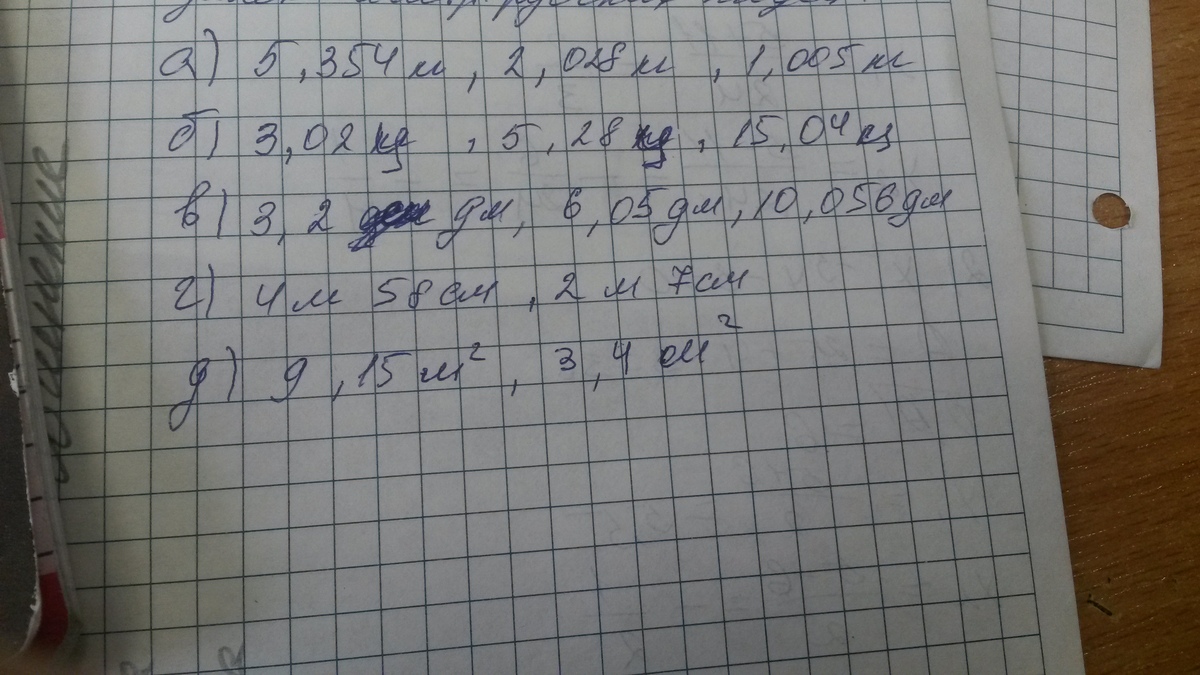 а) 5,354 кг, 2,028 кг, 1,005 кг
б) 3,02 кг, 5,28 кг, 15,04 ц
в) 3,2 дм, 6,05 дм, 10,056 дм
г) 4 м 58 см, 2 м 7 см
д) 9,15 м², 3,4 см²